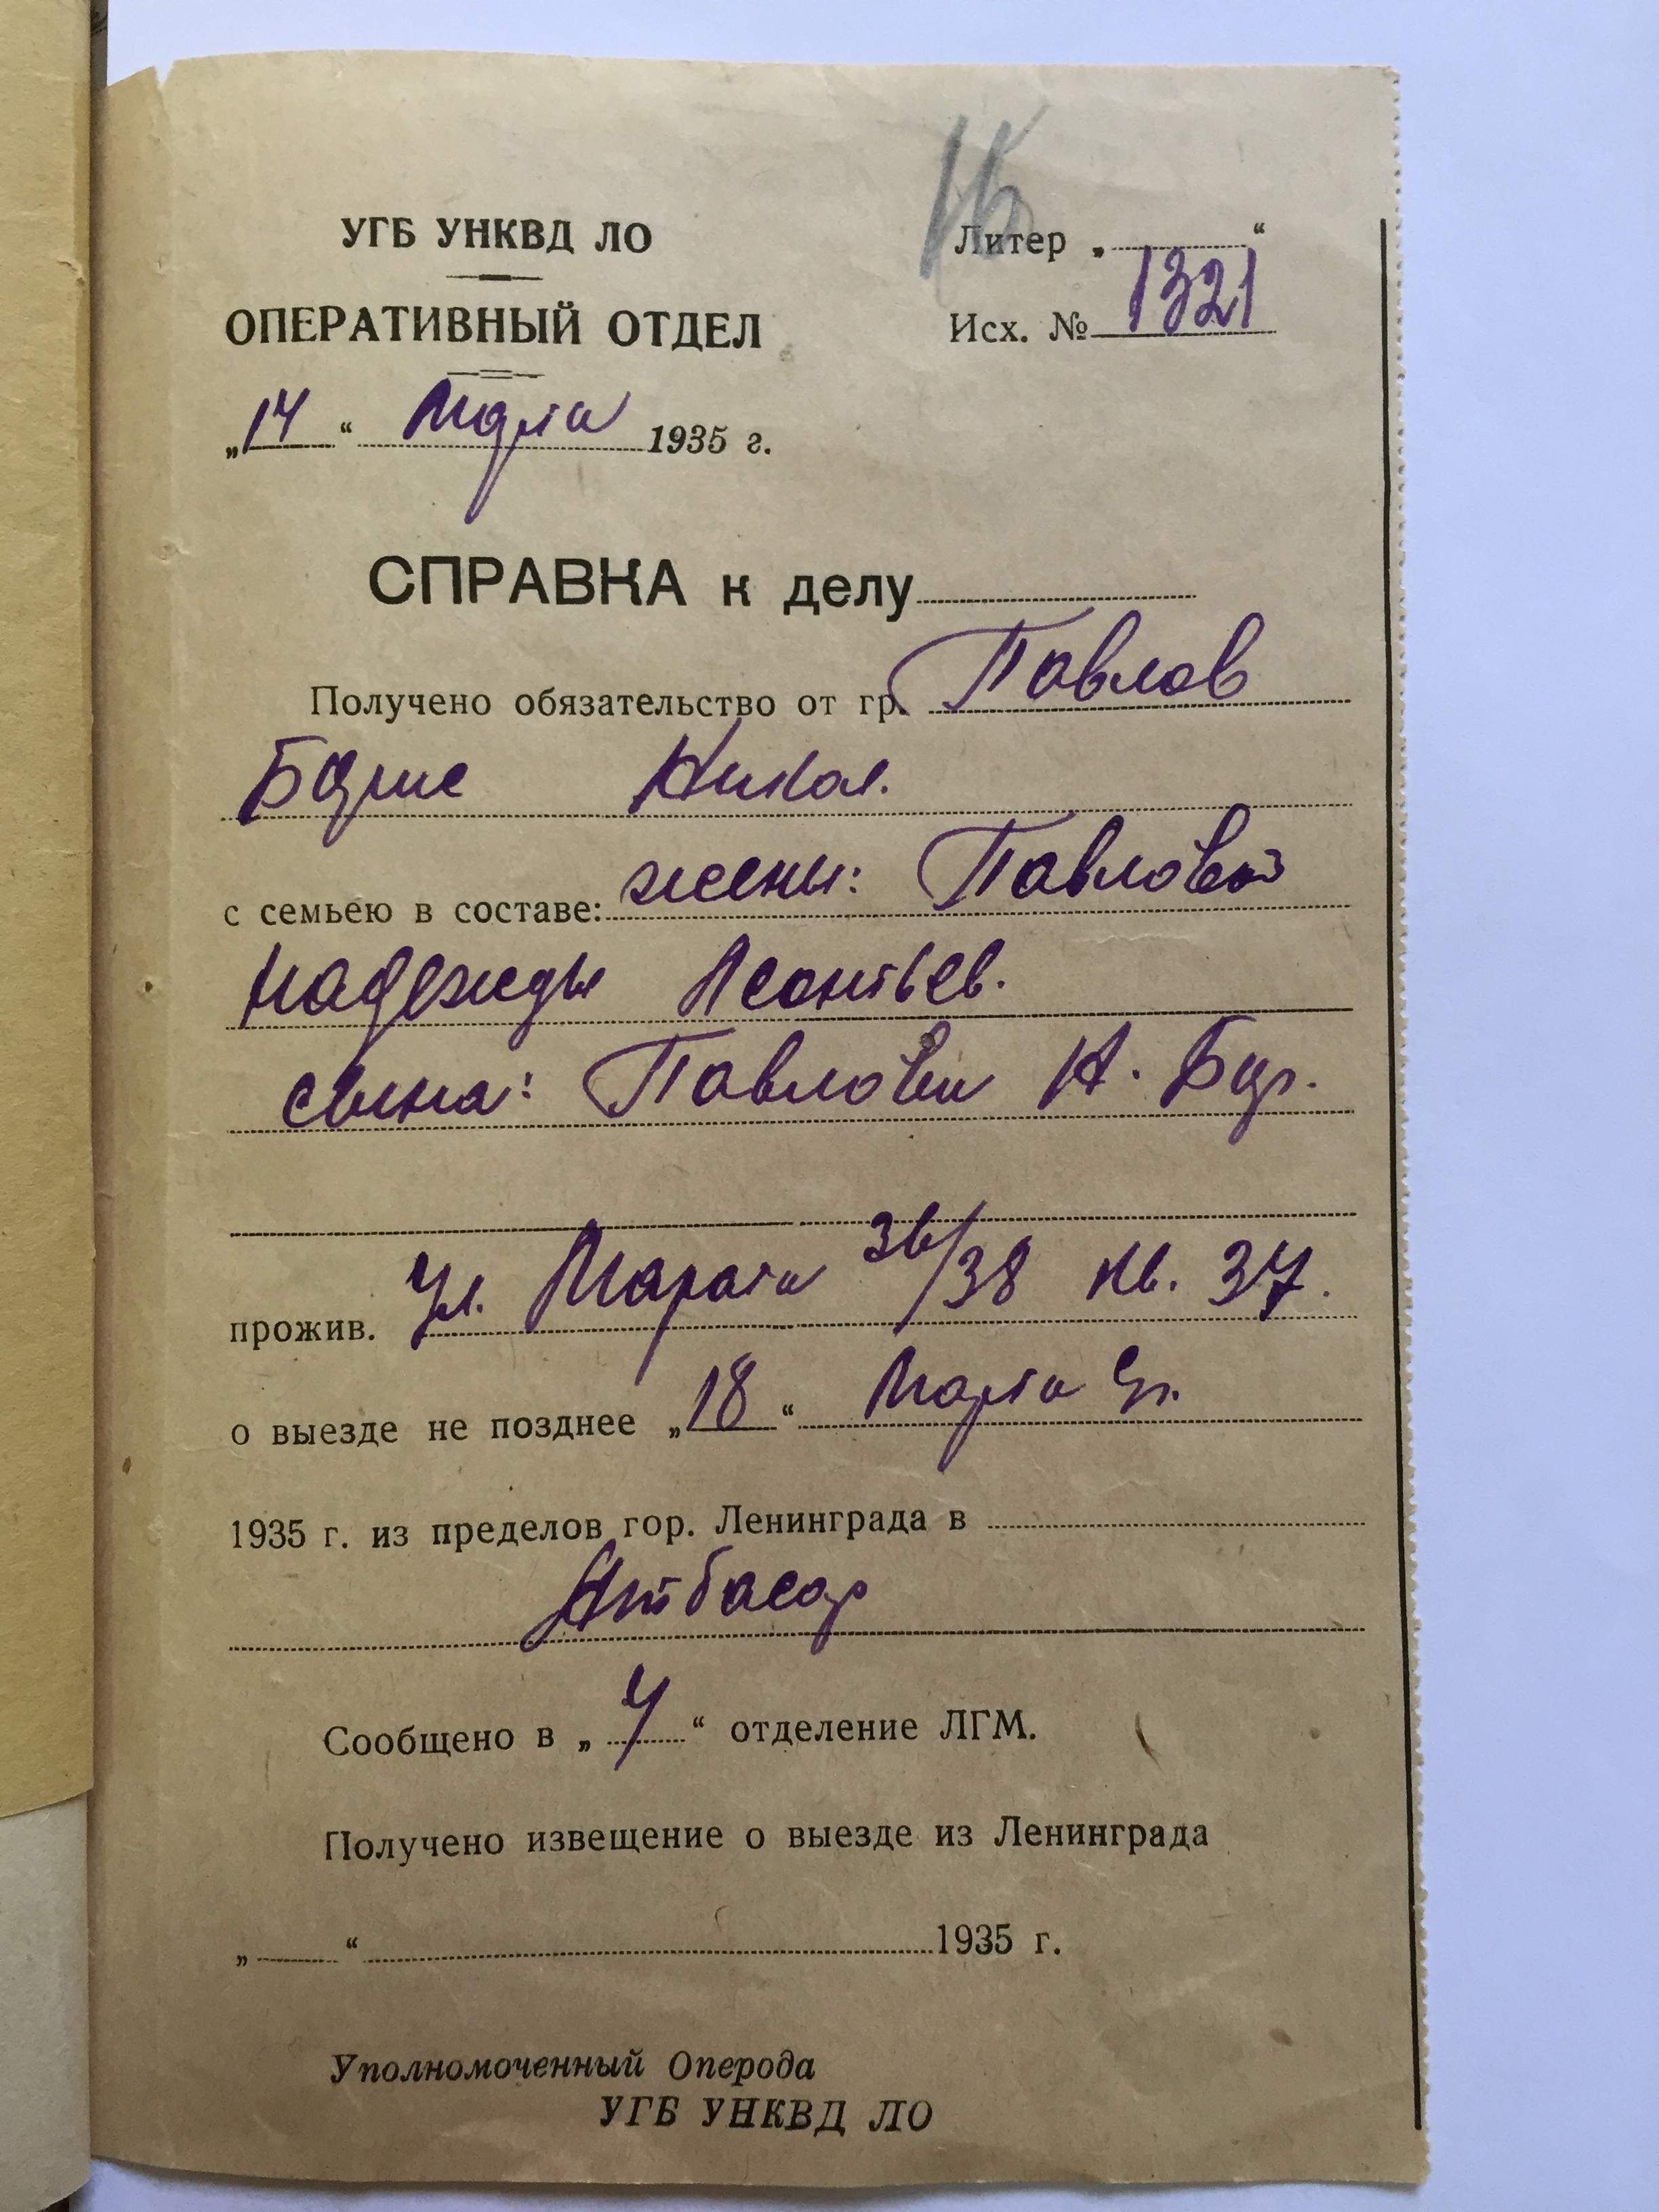 16
УГБ УНКВД ЛО
Литер „ “
ОПЕРАТИВНЫЙ ОТДЕЛ
Исх. № 1321
„14“ Марта 1935 г.
СПРАВКА к делу
Получено обязательство от гр. Павлов
Борис Никол.
с семьею в составе: жены: Павловой
Надежды Леонтьев.
сына: Павлова Н. Бор.
прожив. Ул. Марата 36/38 кв. 37.
о выезде не позднее „18“ Марта
1935 г. из пределов гор. Ленинграда в
Атбасар
Сообщено в „4“ отделение ЛГМ.
Получено извещение о выезде из Ленинграда
„ “ 1935 г.
Уполномоченный Оперода
УГБ УНКВД ЛО